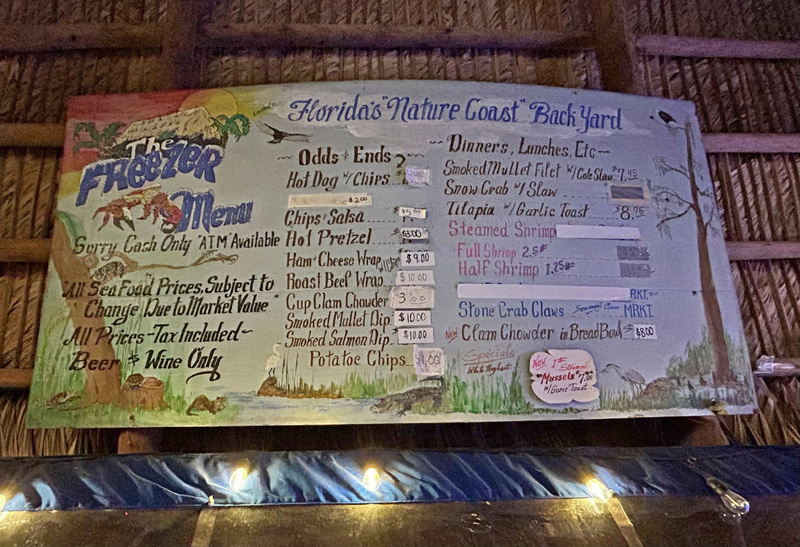 The
FREEZER
Menu
Sorry Cash Only "ATM" Available
"All Sea Food" Prices Subject to
Change "Due to Market Value"
All Prices - Tax Included~
"Beer & Wine Only
Florida's "Nature Coast" Back Yard
~ Odds & Ends ~
Hot Dog w/Chips
$2.00
Chips & Salsa
Hot Pretzel $3.00
Ham & Cheese Wrap $9.00
Roast Beef Wrap $10.00
Cup Clam Chowder
Smoked Mullet Dip $10.00
Smoked Salmon Dip $10.00
Potato Chips $1.00
~Dinners, Lunches, Etc~
Smoked Mullet Filet w/Cole Slaw
Snow Crab w/ Slaw
Tilapia w/Garlic Toast $8.75
Steamed Shrimp
Full Shrimp 2.5#
Half Shrimp 1.25#
MRKT.
Stone Crab Claws Seasonal MRKT.
New Clam Chowder in Bread Bowl $8.00
Specials
While They Last
New 1# Steamed
"Mussels"
w/Garlic Toast